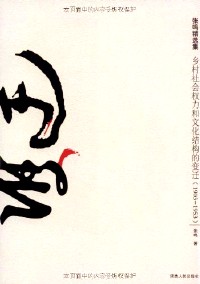 本页面中的内容受版权保护
张鸣精选集
乡村社会权力和文化结构的变迁（1903-1953）
张鸣 著
陕西人民出版社
本页面中的内容受版权保护